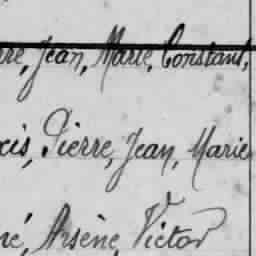 Jean, Marie, Constant,
Pierre, Jean, Marie
Arsène, Victor